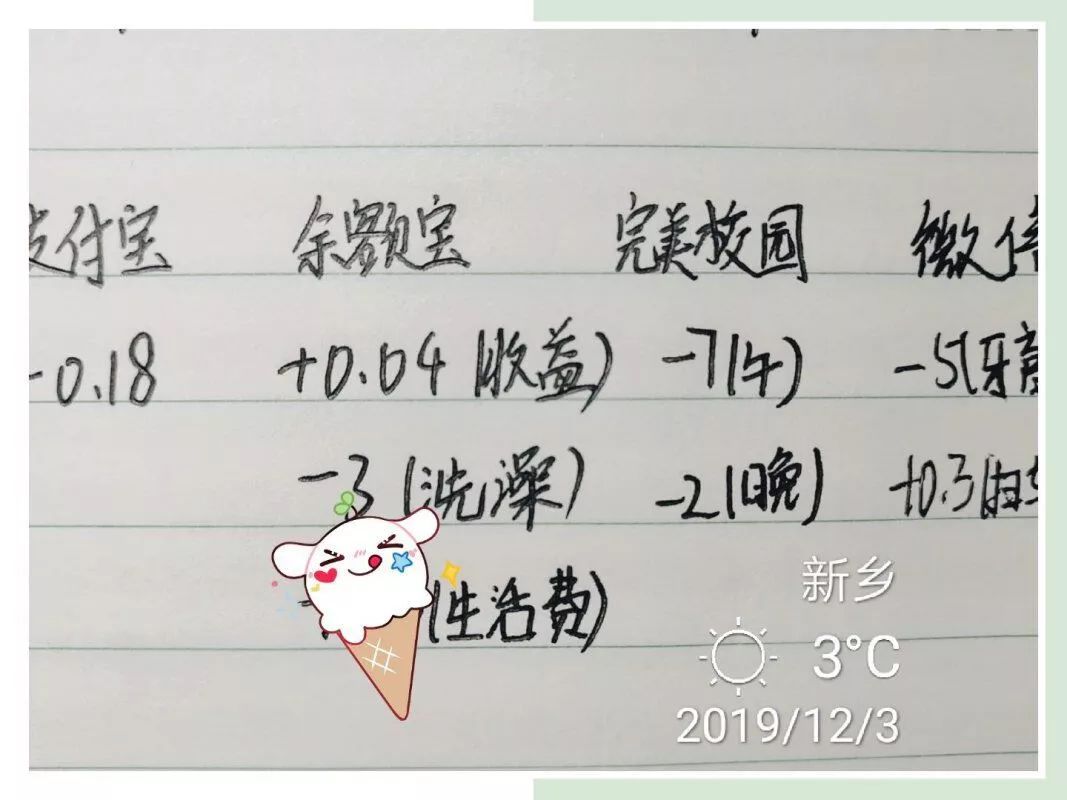 支付宝 余额宝 完美校园 微信
-0.18 +0.04(收益) -7(午) -5(牙膏
-3(洗澡) -2(晚) +0.3(
(生活费)
新乡
3°C
2019/12/3